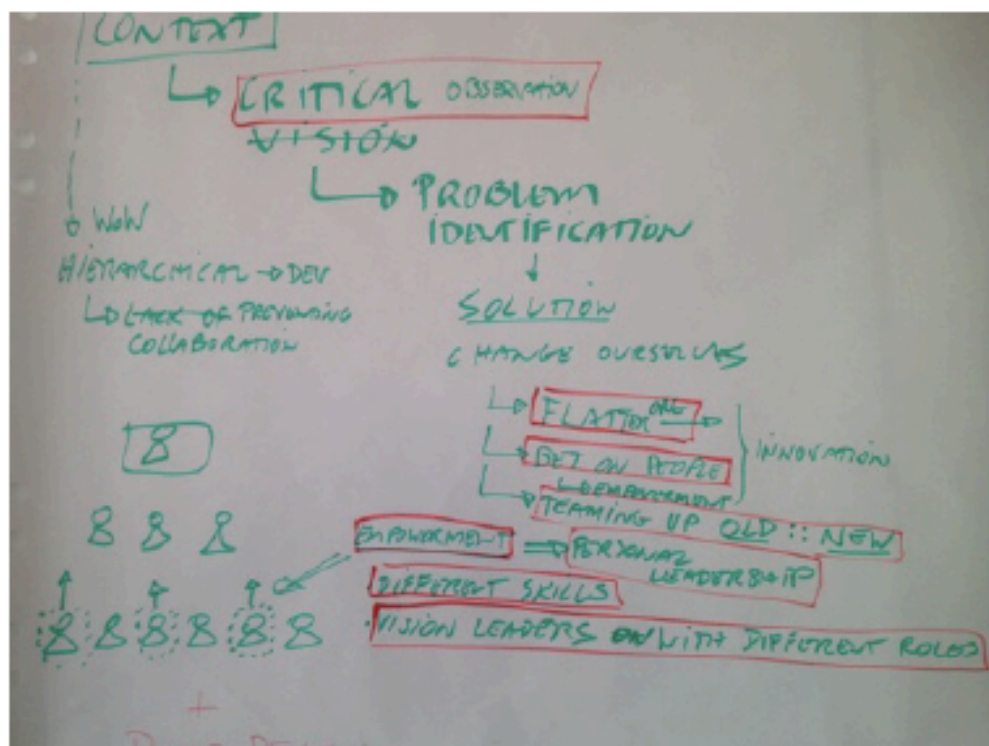 CONTEXT
CRITICAL OBSERVATION
VISION
PROBLEM
IDENTIFICATION
WOW
HIERARCHICAL → DEV
LACK OF PREVENDING
COLLABORATION
SOLUTION
CHANGE OURSELVES
FLATTER ORG
BET ON PEOPLE
EMPOWERMENT
INNOVATION
TEAMING UP OLD :: NEW
EMPOWERMENT ⇒ PERSONAL
LEADERSHIP
DIFFERENT SKILLS
VISION LEADERS WITH DIFFERENT ROLES
+